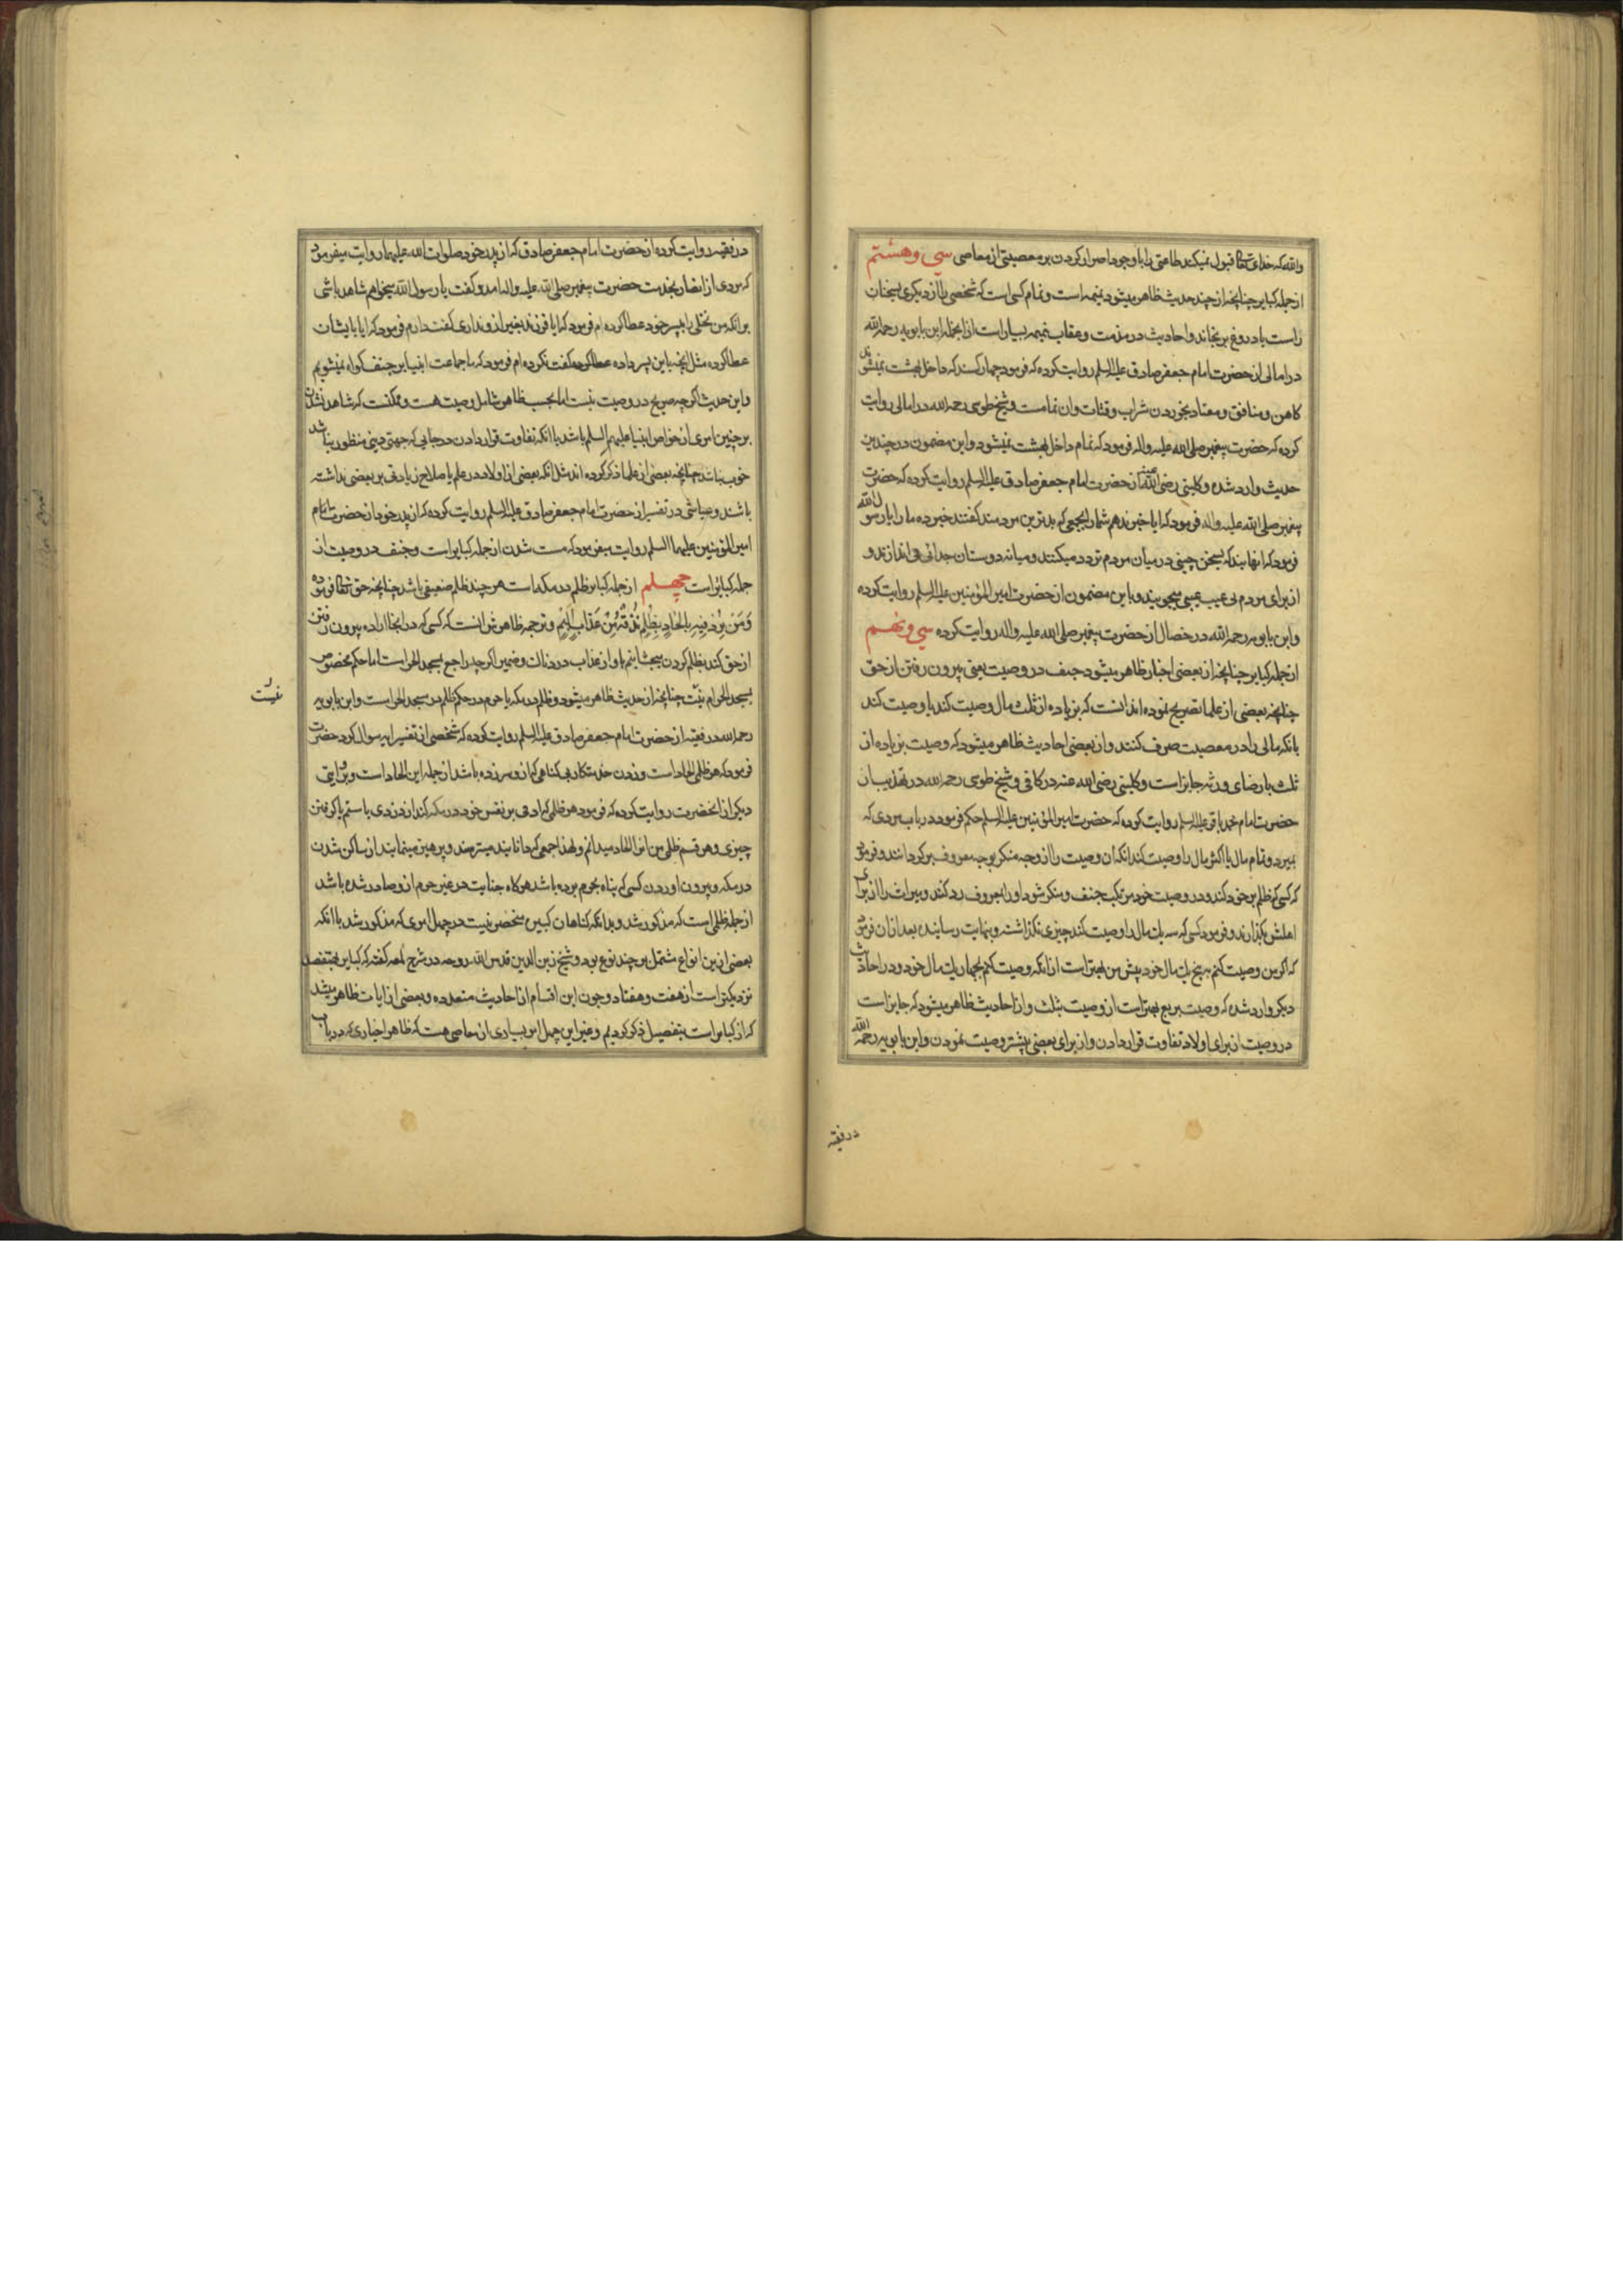 والله که خدای تعالی قبول نمیکند طاعتی را با وجود اصرار کردن بر معصیتی از معاصی سی و هشتم
از جمله کبایر چنانچه از چند حدیث ظاهر میشود نمیمه است و نمام کسی است که شخصی را از دیگری بسخنان
راست یا دروغ برنجاند و احادیث در مذمت و عقاب نمیمه بسیار است از انجمله ابن بابویه رحمه الله
در امالی از حضرت امام جعفر صادق علیه السلم روایت کرده که فرمود چهار کسند که داخل بهشت نمیشوند
کاهن و منافق و معتاد بخوردن شراب و قتات و ان نمامست و شیخ طوسی رحمه الله در امالی روایت
کرده که حضرت پیغمبر صلی الله علیه و اله فرمود که نمام داخل بهشت نمیشود و این مضمون در چندین
حدیث وارد شده و کلینی رضی الله عنه از حضرت امام جعفر صادق علیه السلم روایت کرده که حضرت
پیغمبر صلی الله علیه و اله فرمود که ایا خبر ندهم شما را بجمعی که بدترین مردمند گفتند خبر ده ما را یا رسول الله
فرمود که انهایند که بسخن چینی در میان مردم تردد میکنند و میانه دوستان جدائی می اندازند و
از برای مردم بی عیب عیبی میجویند و باین مضمون از حضرت امیر المؤمنین علیه السلم روایت کرده
و ابن بابویه رحمه الله در خصال از حضرت پیغمبر صلی الله علیه و اله روایت کرده سی و نهم
از جمله کبایر چنانچه از بعضی اخبار ظاهر میشود جنف در وصیت یعنی بیرون رفتن از حق
چنانچه بعضی از علما تصریح نموده اند انست که بزیاده از ثلث مال وصیت کند یا وصیت کند
بانکه مالی را در معصیت صرف کنند و از بعضی احادیث ظاهر میشود که وصیت بزیاده از
ثلث با رضای ورثه جایز است و کلینی رضی الله عنه در کافی و شیخ طوسی رحمه الله در تهذیب از
حضرت امام محمد باقر علیه السلم روایت کرده که حضرت امیر المؤمنین علیه السلم حکم فرمود در باب مردی که
بمیرد و تمام مال یا اکثر مال را وصیت کند انکه ان وصیت را از وجه منکر بوجه معروف برگردانند و فرمود
که کسی که ظلم بر خود کند و در وصیت خود مرتکب جنف و منکر شود او را بمعروف رد کنند و میراث را از برای
اهلش بگذارند و فرمود کسی که سه یک مال را وصیت کند چیزی نگذاشته و بنهایت رسانیده بعد از ان فرمود
که اگر من وصیت کنم به پنج یک مال خود پیش من بهتر است از انکه وصیت کنم بچهار یک مال خود و در احادیث
دیگر وارد شده که وصیت بربع بهتر است از وصیت بثلث و از احادیث ظاهر میشود که جایز است
در وصیت از برای اولاد تفاوت قرار دادن و از برای بعضی بیشتر وصیت نمودن و ابن بابویه رحمه الله
در فقیه
در فقیه روایت کرده از حضرت امام جعفر صادق که از پدر خود صلوات الله علیهما روایت میفرمود
که مردی از انصار بخدمت حضرت پیغمبر صلی الله علیه و اله امد و گفت یا رسول الله میخواهم شاهد باشی
بر انکه من نخلی را بپسر خود عطا کرده ام فرمود که ایا فرزند بغیر از و نداری گفت دارم فرمود که ایا بایشان
عطا کرده مثل انچه باین پسر داده عطا کرده گفت نکرده ام فرمود که ما جماعت انبیا بر جنف گواه نمیشویم
و این حدیث اگر چه صریح در وصیت نیست اما بحسب ظاهر شامل وصیت هست و ممکنست که شاهد نشدن
بر چنین امری از خواص انبیا علیهم السلم باشد با انکه تفاوت قرار دادن در جایی که جهتی دینی منظور نباشد
خوب نباشد چنانچه بعضی از علما ذکر کرده اند مثل انکه بعضی از اولاد در علم یا صلاح زیادتی بر بعضی نداشته
باشند و عیاشی در تفسیر از حضرت امام جعفر صادق علیه السلم روایت کرده که از پدر خود از حضرت امام
امیر المؤمنین علیهما السلم روایت میفرمود که مست شدن از جمله کبایر است و جنف در وصیت از
جمله کبایر است چهلم از جمله کبایر ظلم در مکه است هر چند ظلم ضعیفی باشد چنانچه حق تعالی فرموده
وَمَنْ يُرِدْ فِيهِ بِالْحَادٍ بِظُلْمٍ نُذِقْهُ مِنْ عَذَابٍ أَلِيمٍ و ترجمه ظاهرش انست که کسی که در انجا اراده بیرون رفتن
از حق کند بظلم کردن میچشانیم باو از عذاب دردناک و ضمیر اگر چه راجع بمسجد الحرام است اما حکم مخصوص
بمسجد الحرام نیست چنانچه از حدیث ظاهر میشود و ظلم در مکه یا حرم در حکم ظلم در مسجد الحرام است و ابن بابویه
رحمه الله در فقیه از حضرت امام جعفر صادق علیه السلم روایت کرده که شخصی از تفسیر ایه سوال کرد حضرت
فرمود که هر ظلمی الحاد است و زدن خدمتکار بی گناهی که از و سر زده باشد از جمله این الحاد است و بروایتی
دیگر از انحضرت روایت کرده که فرمود هر ظلمی که ادمی بر نفس خود در مکه کند از دزدی یا ستم یا گرفتن
چیزی و هر قسم ظلمی من انرا الحاد میدانم و لهذا جمعی که دانایند میترسند و پرهیز مینمایند از ساکن شدن
در مکه و بیرون اوردن کسی که پناه بحرم برده باشد هر گاه جنایت در غیر حرم از و صادر شده باشد
از جمله ظلمی است که مذکور شد و بدانکه گناهان کبیره منحصر نیست در چهل امری که مذکور شد با انکه
بعضی از ین انواع مشتمل بر چند نوع بود و شیخ زین الدین قدس الله روحه در شرح لمعه گفته که کبایر بهفتصد
نزدیکتر است از هفت و هفتاد و چون این اقسام از احادیث متعدده و بعضی از ایات ظاهر میشد
که از کبایر است بتفصیل ذکر کردیم و غیر این چهل امر بسیاری از معاصی هست که ظاهر اخباری که در باب
نیست